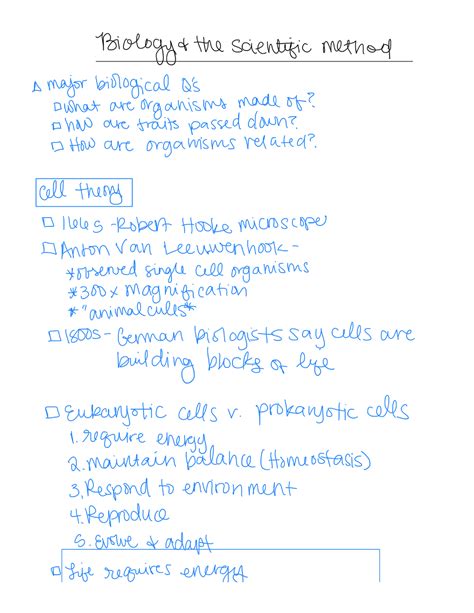 Biology & the scientific method
major biological Q's
what are organisms made of?
how are traits passed down?
How are organisms related?
cell theory
1665 - Robert Hooke microscope
Anton Van Leeuwenhook -
*observed single cell organisms
*300x magnification
*"animalcules"
1800s - German biologists say cells are
building blocks of life
Eukaryotic cells v. prokaryotic cells
1. require energy
2. maintain balance (Homeostasis)
3. Respond to environment
4. Reproduce
5. Evolve & adapt
Life requires energy